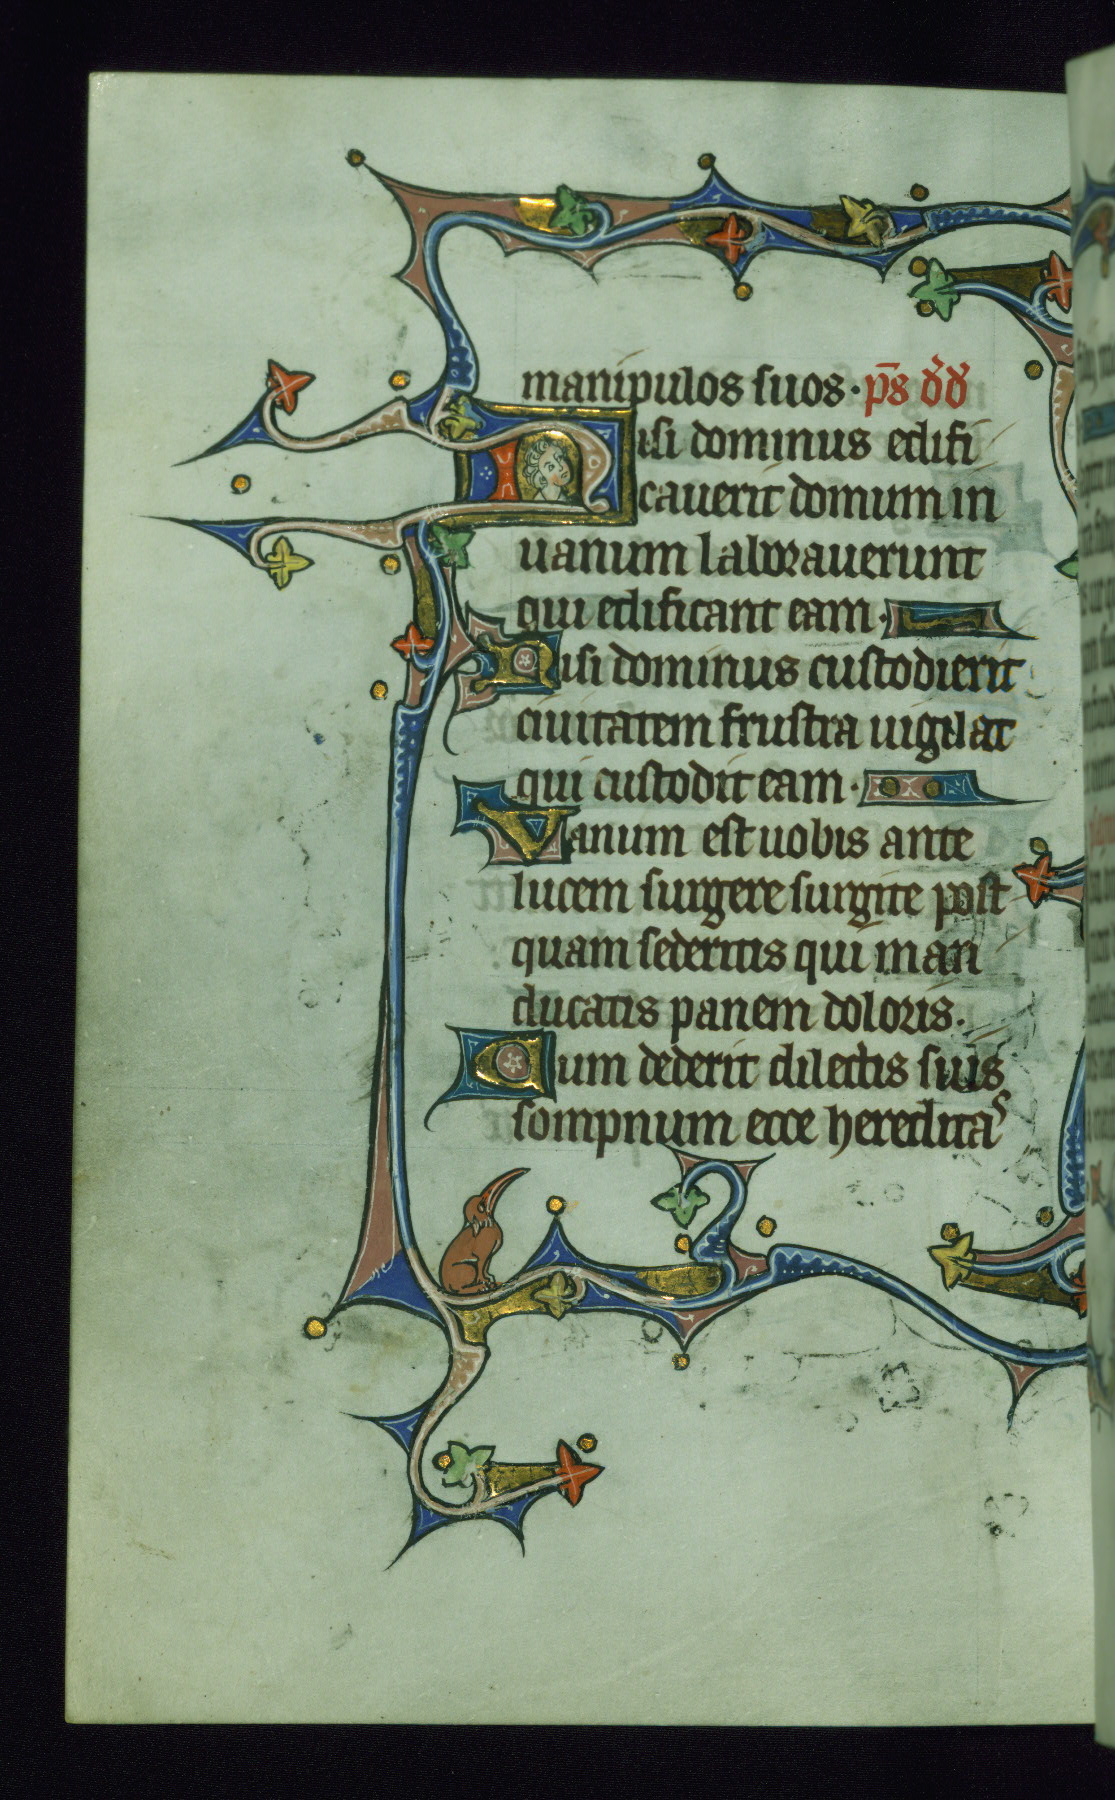 manipulos suos. ps̄ dd̄
Nisi dominus edifi
cauerit domum in
uanum laborauerunt
qui edificant eam.
Nisi dominus custodierit
ciuitatem frustra uigilat
qui custodit eam.
Vanum est uobis ante
lucem surgere surgite post
quam sederitis qui man
ducatis panem doloris.
Cum dederit dilectis suis
sompnum ecce heredita
s